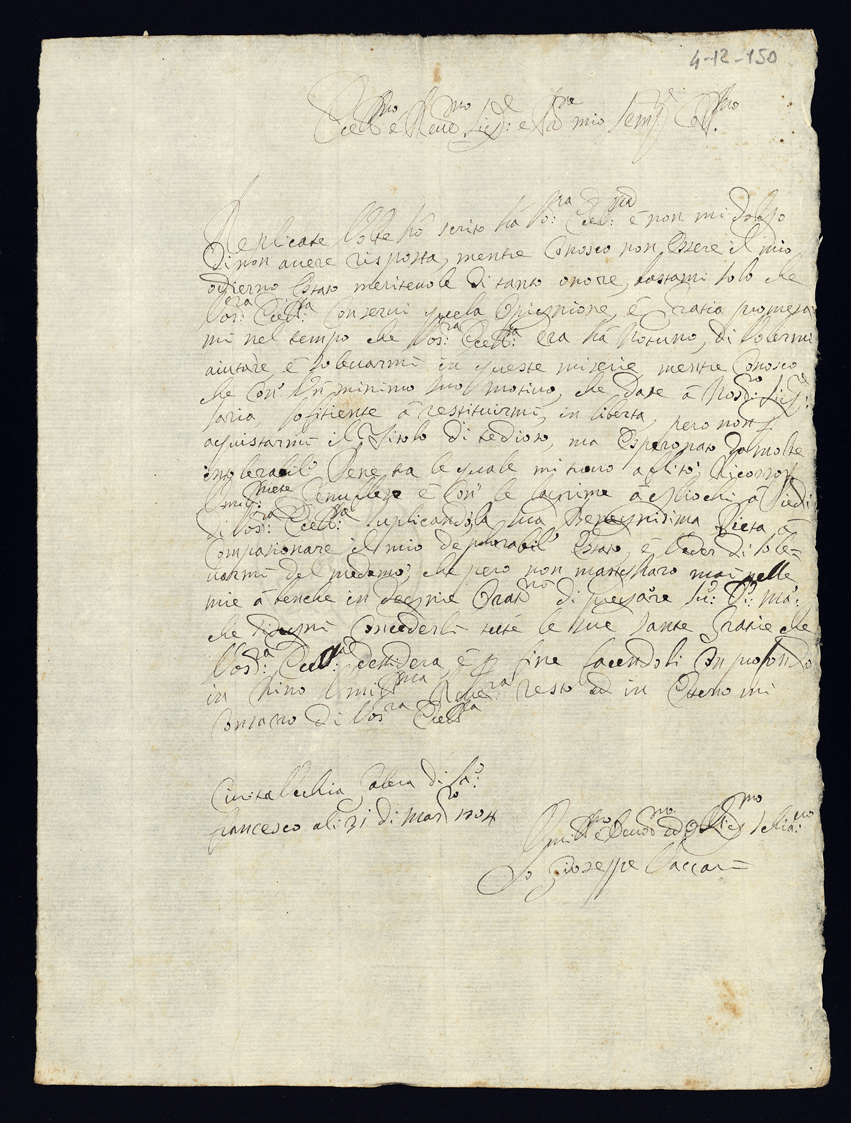 4-12-150
Ecc:mo e Reve:mo Sig:re e P:re mio Semp: Coll:mo
Replicate Volte hò scrito hà Vo:ra Ecel:ma è non mi dolgo
di non avere risposta, mentre Conosco non Essere il mio
odierno Estato meritevole di tanto onore, bastami solo che
Vos:ra Ecell:za Conservi quela Opiennione, è Gratia promesa
mi nel tempo che Vos:ra Ecell:za era hà Notuno, di Volermi
aiutare, è solevarmi in queste miserie, mentre Conosco
che Con' Un minimo suo motivo, che dase à Nos:ro Sig:re
saria, sofitiente à restituirmi, in liberta, pero non p
acquistarmi il Titolo di tedioso, ma Esperonato da molte
intolerabili Pene, tra le quale mi trovo aflito; Ricorro
Umi: è Con' le lacrime à gliochi à Piedi
di Vos:ra Ecell:za Suplicandola sua Benegnidima Pieta à
Compasionare il mio deplorabil' Estato, è Veder di sole=
varmi del medemo; che pero non mancharo mai nelle
mie à benche in decgnie Orat:ni di pregare Su: D: Ma:
che Si degni Concederli tute le sue Sante Gratie che
Vos:ra Ecell:za desidera, è p fine facendoli Un profondo
in Chino Umi:ma Rever:za resto ed in Eterno mi
Consacro di Vos:ra Ecell:za
Civita Vechia, di Sa:
francesco ali 21 di Mar:zo 1704
Umill:mo è Devo:mo ed Schia:vo
Io Gioseppe Vaccari=